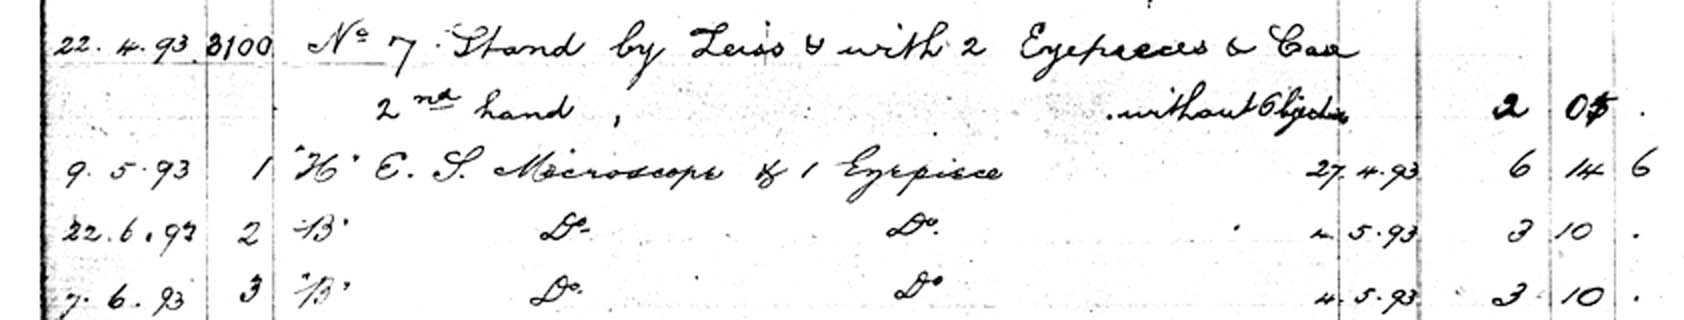 22. 4. 93 3100 No 7 Stand by Zeiss & with 2 Eyepieces & Case
2nd hand, without Objectives 2 05 .
9. 5. 93 1 "H" E. S. Microscope & 1 Eyepiece 27. 4. 93 6 14 6
22. 6. 93 2 "B" Do. Do. 4. 5. 93 3 10 .
7. 6. 93 3 "B" Do. Do 4. 5. 93 3 10 .